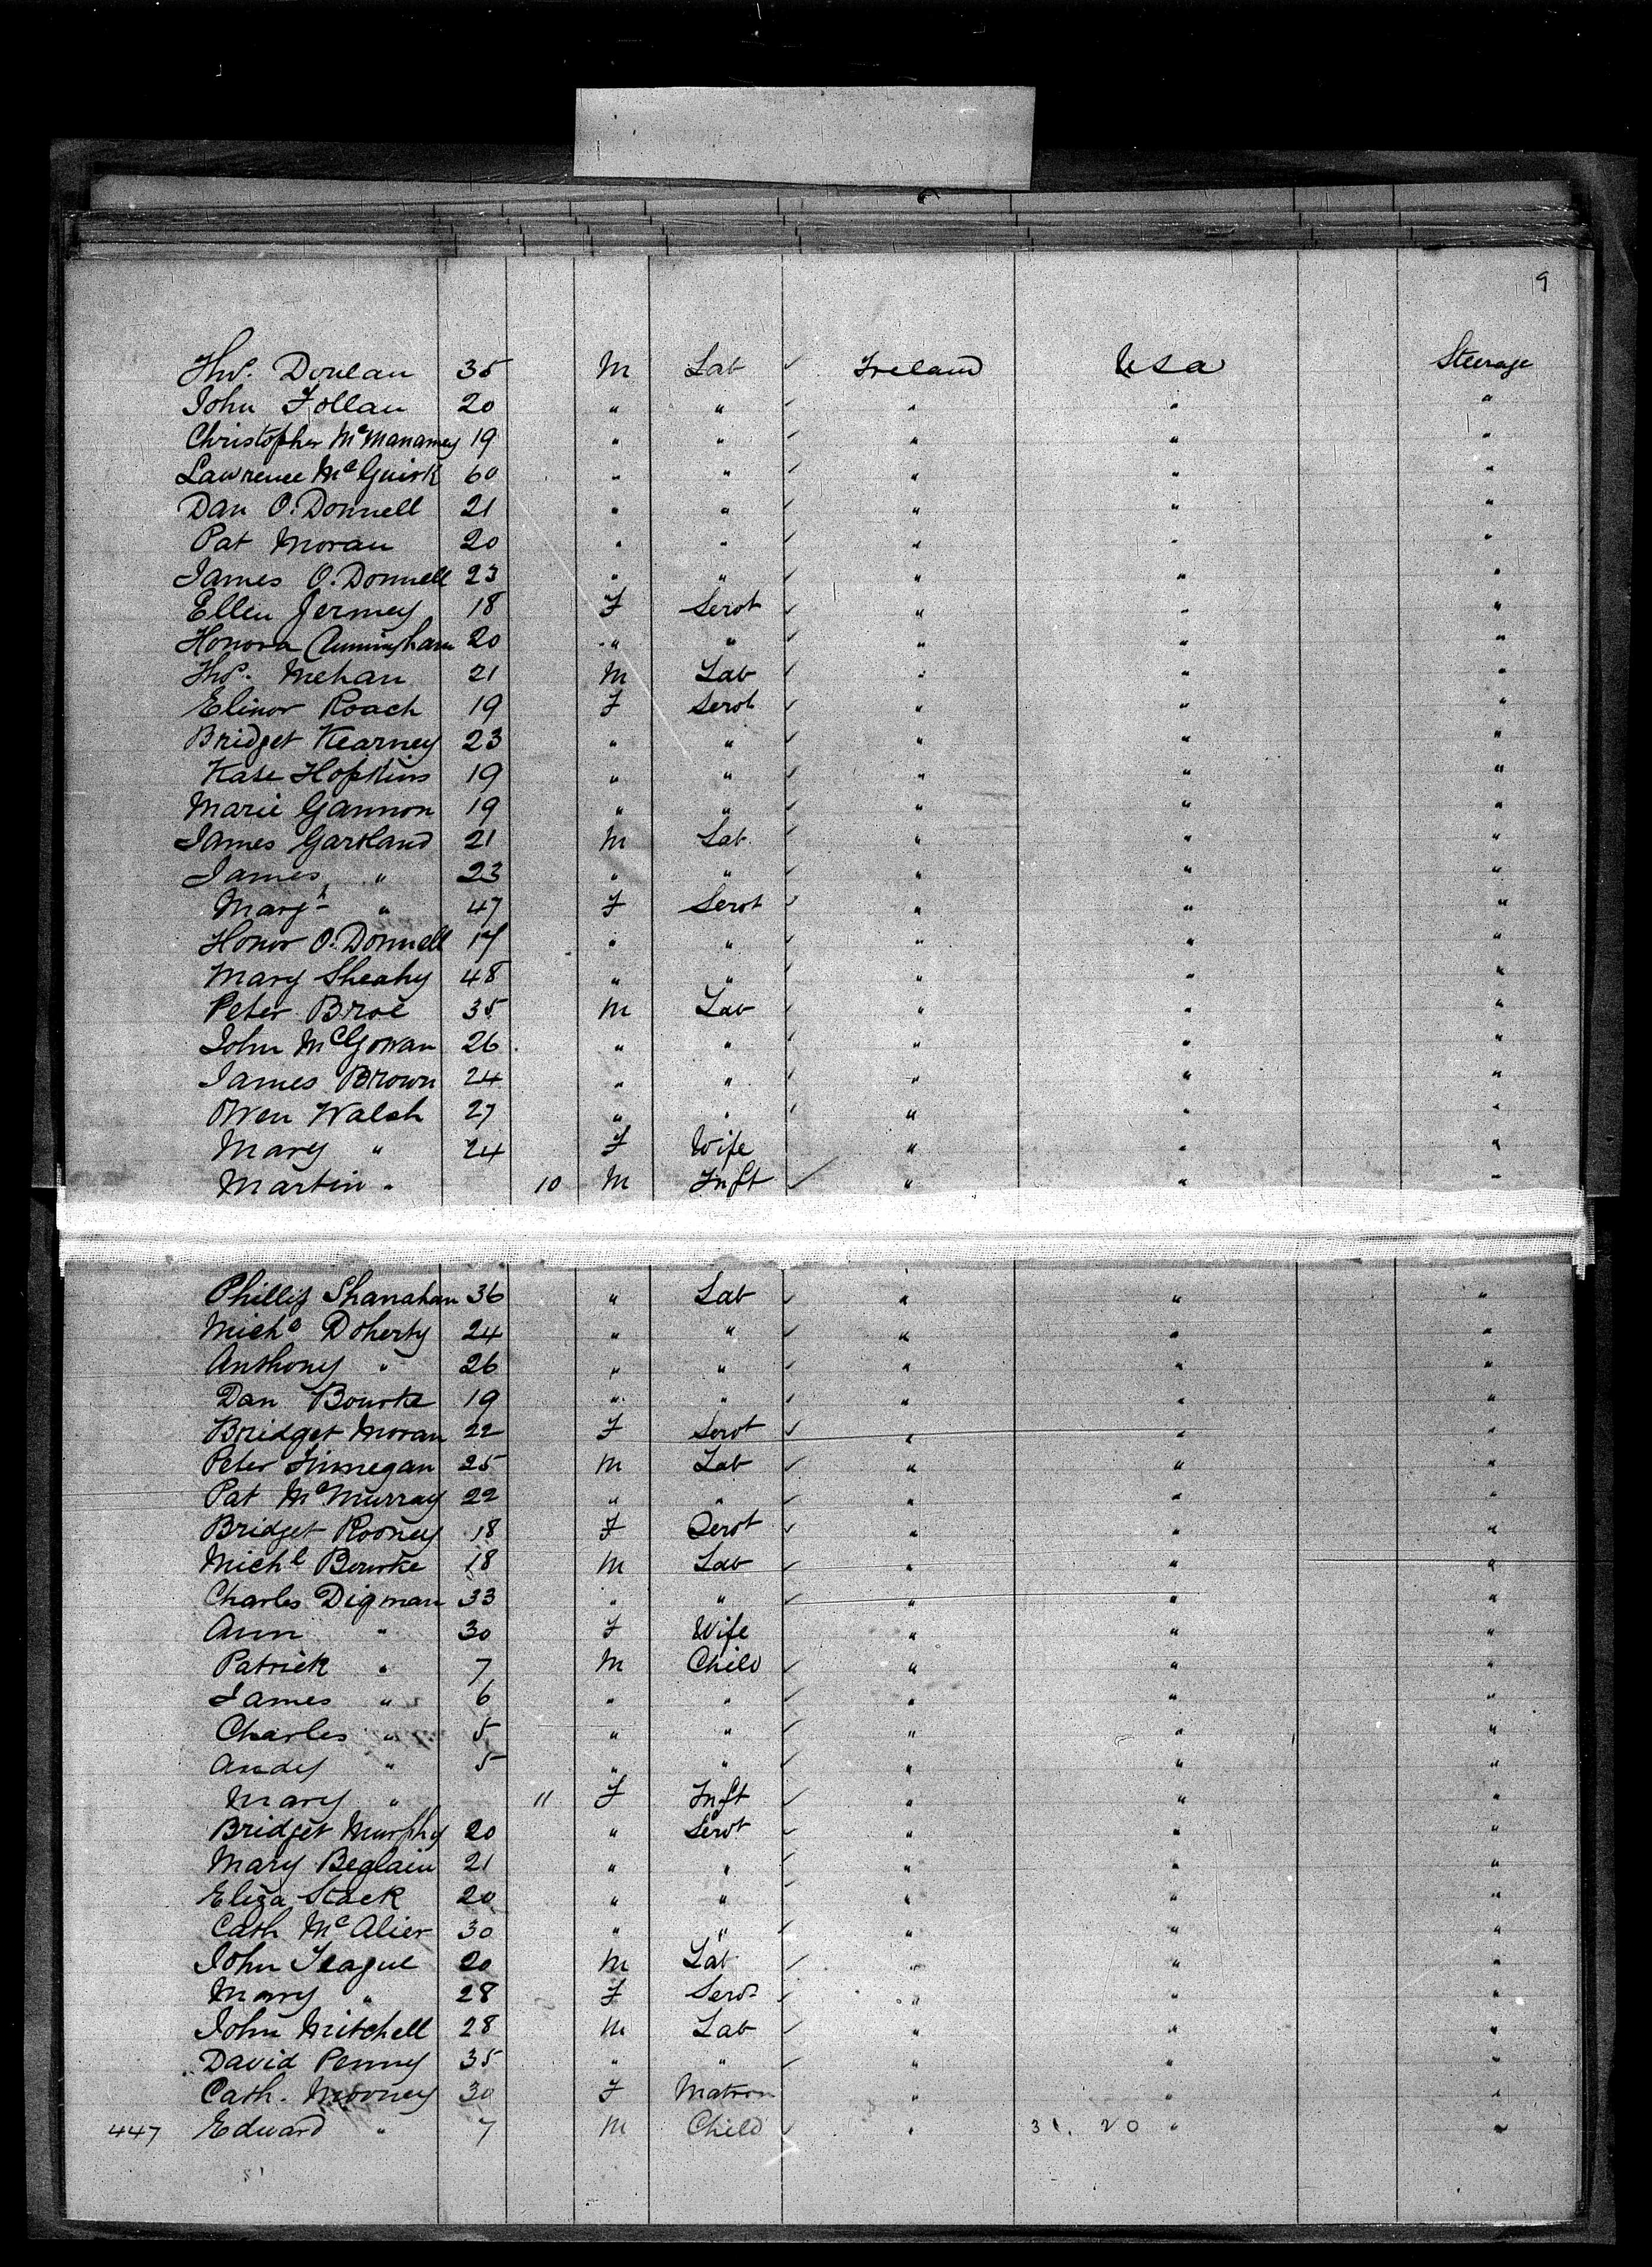 9
Thos. Doulan 35 M Lab ✓ Ireland USA Steerage
John Follan 20 " " ✓ " " "
Christopher McManamey 19 " " ✓ " " "
Lawrence McGuirk 60 " " ✓ " " "
Dan O.Donnell 21 " " ✓ " " "
Pat Moran 20 " " ✓ " " "
James O.Donnell 23 " " ✓ " " "
Ellen Jermey 18 F Servt ✓ " " "
Honora Cunningham 20 " " ✓ " " "
Thos. Mehan 21 M Lab ✓ " " "
Elinor Roach 19 F Servt ✓ " " "
Bridget Kearney 23 " " ✓ " " "
Kate Hopkins 19 " " ✓ " " "
Marie Gannon 19 " " ✓ " " "
James Gartland 21 M Lab ✓ " " "
James " 23 " " ✓ " " "
Margt " 47 F Servt ✓ " " "
Honor O.Donnell 17 " " ✓ " " "
Mary Sheahy 48 " " ✓ " " "
Peter Broe 35 M Lab ✓ " " "
John McGowan 26 " " ✓ " " "
James Brown 24 " " ✓ " " "
Owen Walsh 27 " " ✓ " " "
Mary " 24 F Wife " " "
Martin " 10 M Inft ✓ " " "
Phillip Shanahan 36 " Lab ✓ " " "
Michl Doherty 24 " " ✓ " " "
Anthony " 26 " " ✓ " " "
Dan Bourke 19 " " ✓ " " "
Bridget Moran 22 F Servt ✓ " " "
Peter Finnegan 25 M Lab ✓ " " "
Pat McMurray 22 " " ✓ " " "
Bridget Rooney 18 F Servt ✓ " " "
Michl Bourke 18 M Lab ✓ " " "
Charles Digman 33 " " ✓ " " "
Ann " 30 F Wife " " "
Patrick " 7 M Child ✓ " " "
James " 6 " " ✓ " " "
Charles " 5 " " ✓ " " "
Andy " 5 " " ✓ " " "
Mary " 11 F Inft ✓ " " "
Bridget Murphy 20 " Servt ✓ " " "
Mary Beglain 21 " " ✓ " " "
Eliza Stack 20 " " ✓ " " "
Cath McAlier 30 " " ✓ " " "
John Teague 20 M Lab ✓ " " "
Mary " 28 F Servt ✓ " " "
John Mitchell 28 M Lab ✓ " " "
David Penny 35 " " ✓ " " "
Cath. Mooney 30 F Matron " " "
447 Edward " 7 M Child ✓ " 31. 20 " "